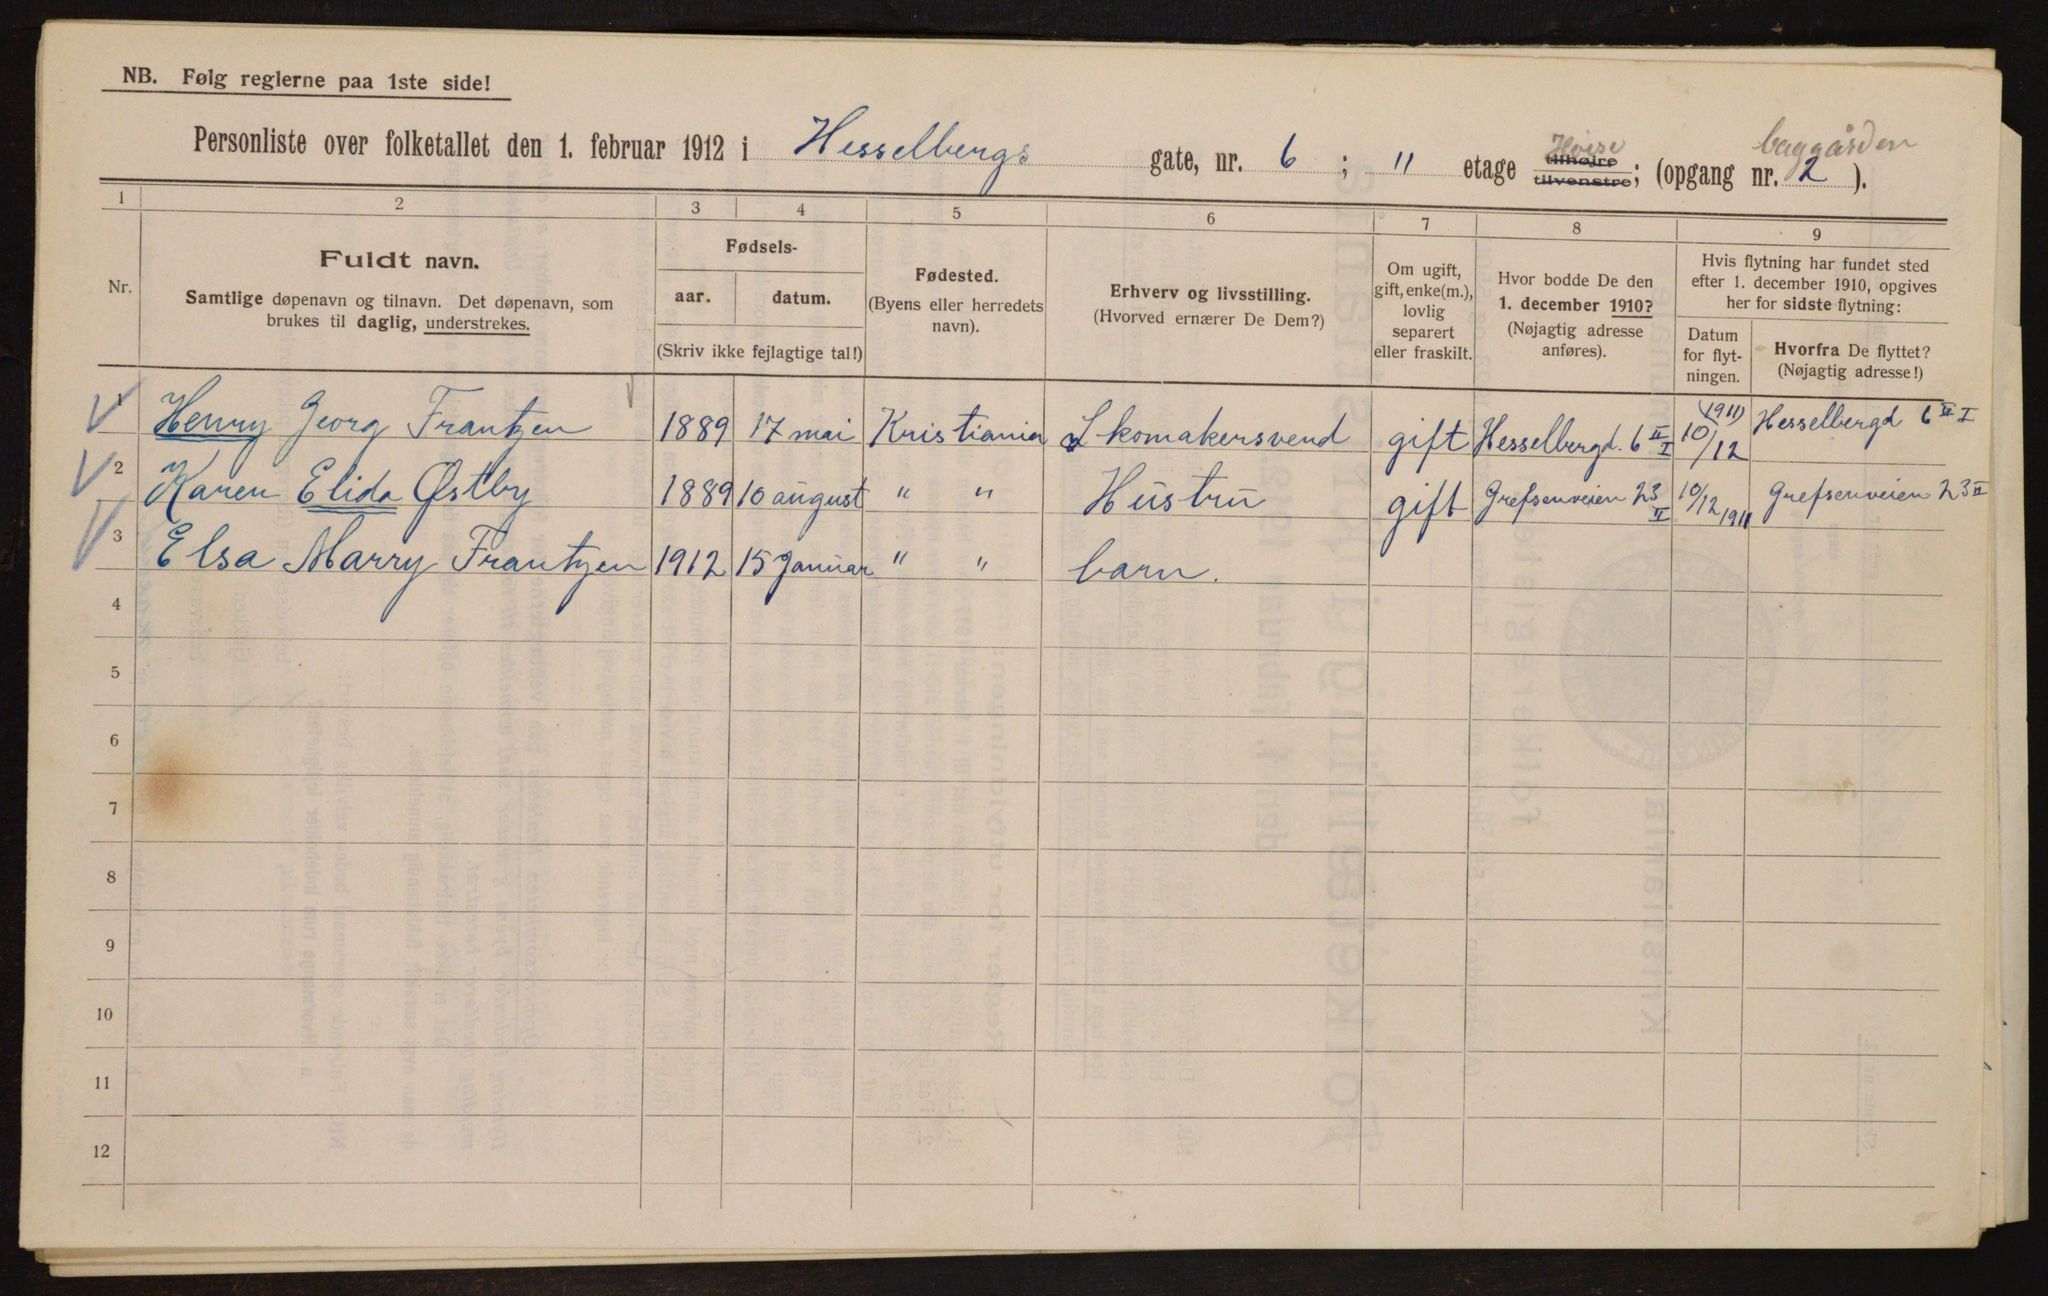 NB. Følg reglerne paa 1ste side!
Personliste over folketallet den 1. februar 1912 i Hesselbergs gate, nr. 6 ; 11 etage tilhøire tilvenstre; (opgang nr. 2 ).
baggården
1 2 3 4 5 6 7 8 9
Nr.
Fuldt navn.
Samtlige døpenavn og tilnavn. Det døpenavn, som
brukes til daglig, understrekes.
Fødsels-
aar. datum.
(Skriv ikke feilagtige tal!)
Fødested.
(Byens eller herredets
navn).
Erhverv og livsstilling.
(Hvorved ernærer De Dem?)
Om ugift,
gift, enke(m.),
lovlig
separert
eller fraskilt.
Hvor bodde De den
1. december 1910?
(Nøjagtig adresse
anføres).
Hvis flytning har fundet sted
efter 1. december 1910, opgives
her for sidste flytning:
Datum
for flyt-
ningen.
Hvorfra De flyttet?
(Nøjagtig adresse!)
1 Henry Georg Frantzen 1889 17 mai Kristiania Skomakersvend gift Hesselbergd. 6 II I 10/12 (1911) Hesselbergd 6 II I
2 Karen Elida Østby 1889 10 august " " Hustru gift Grefsenveien 23 II 10/12 1911 Grefsenveien 23 II
3 Elsa Marry Frantzen 1912 15 Januar " " barn.
4
5
6
7
8
9
10
11
12